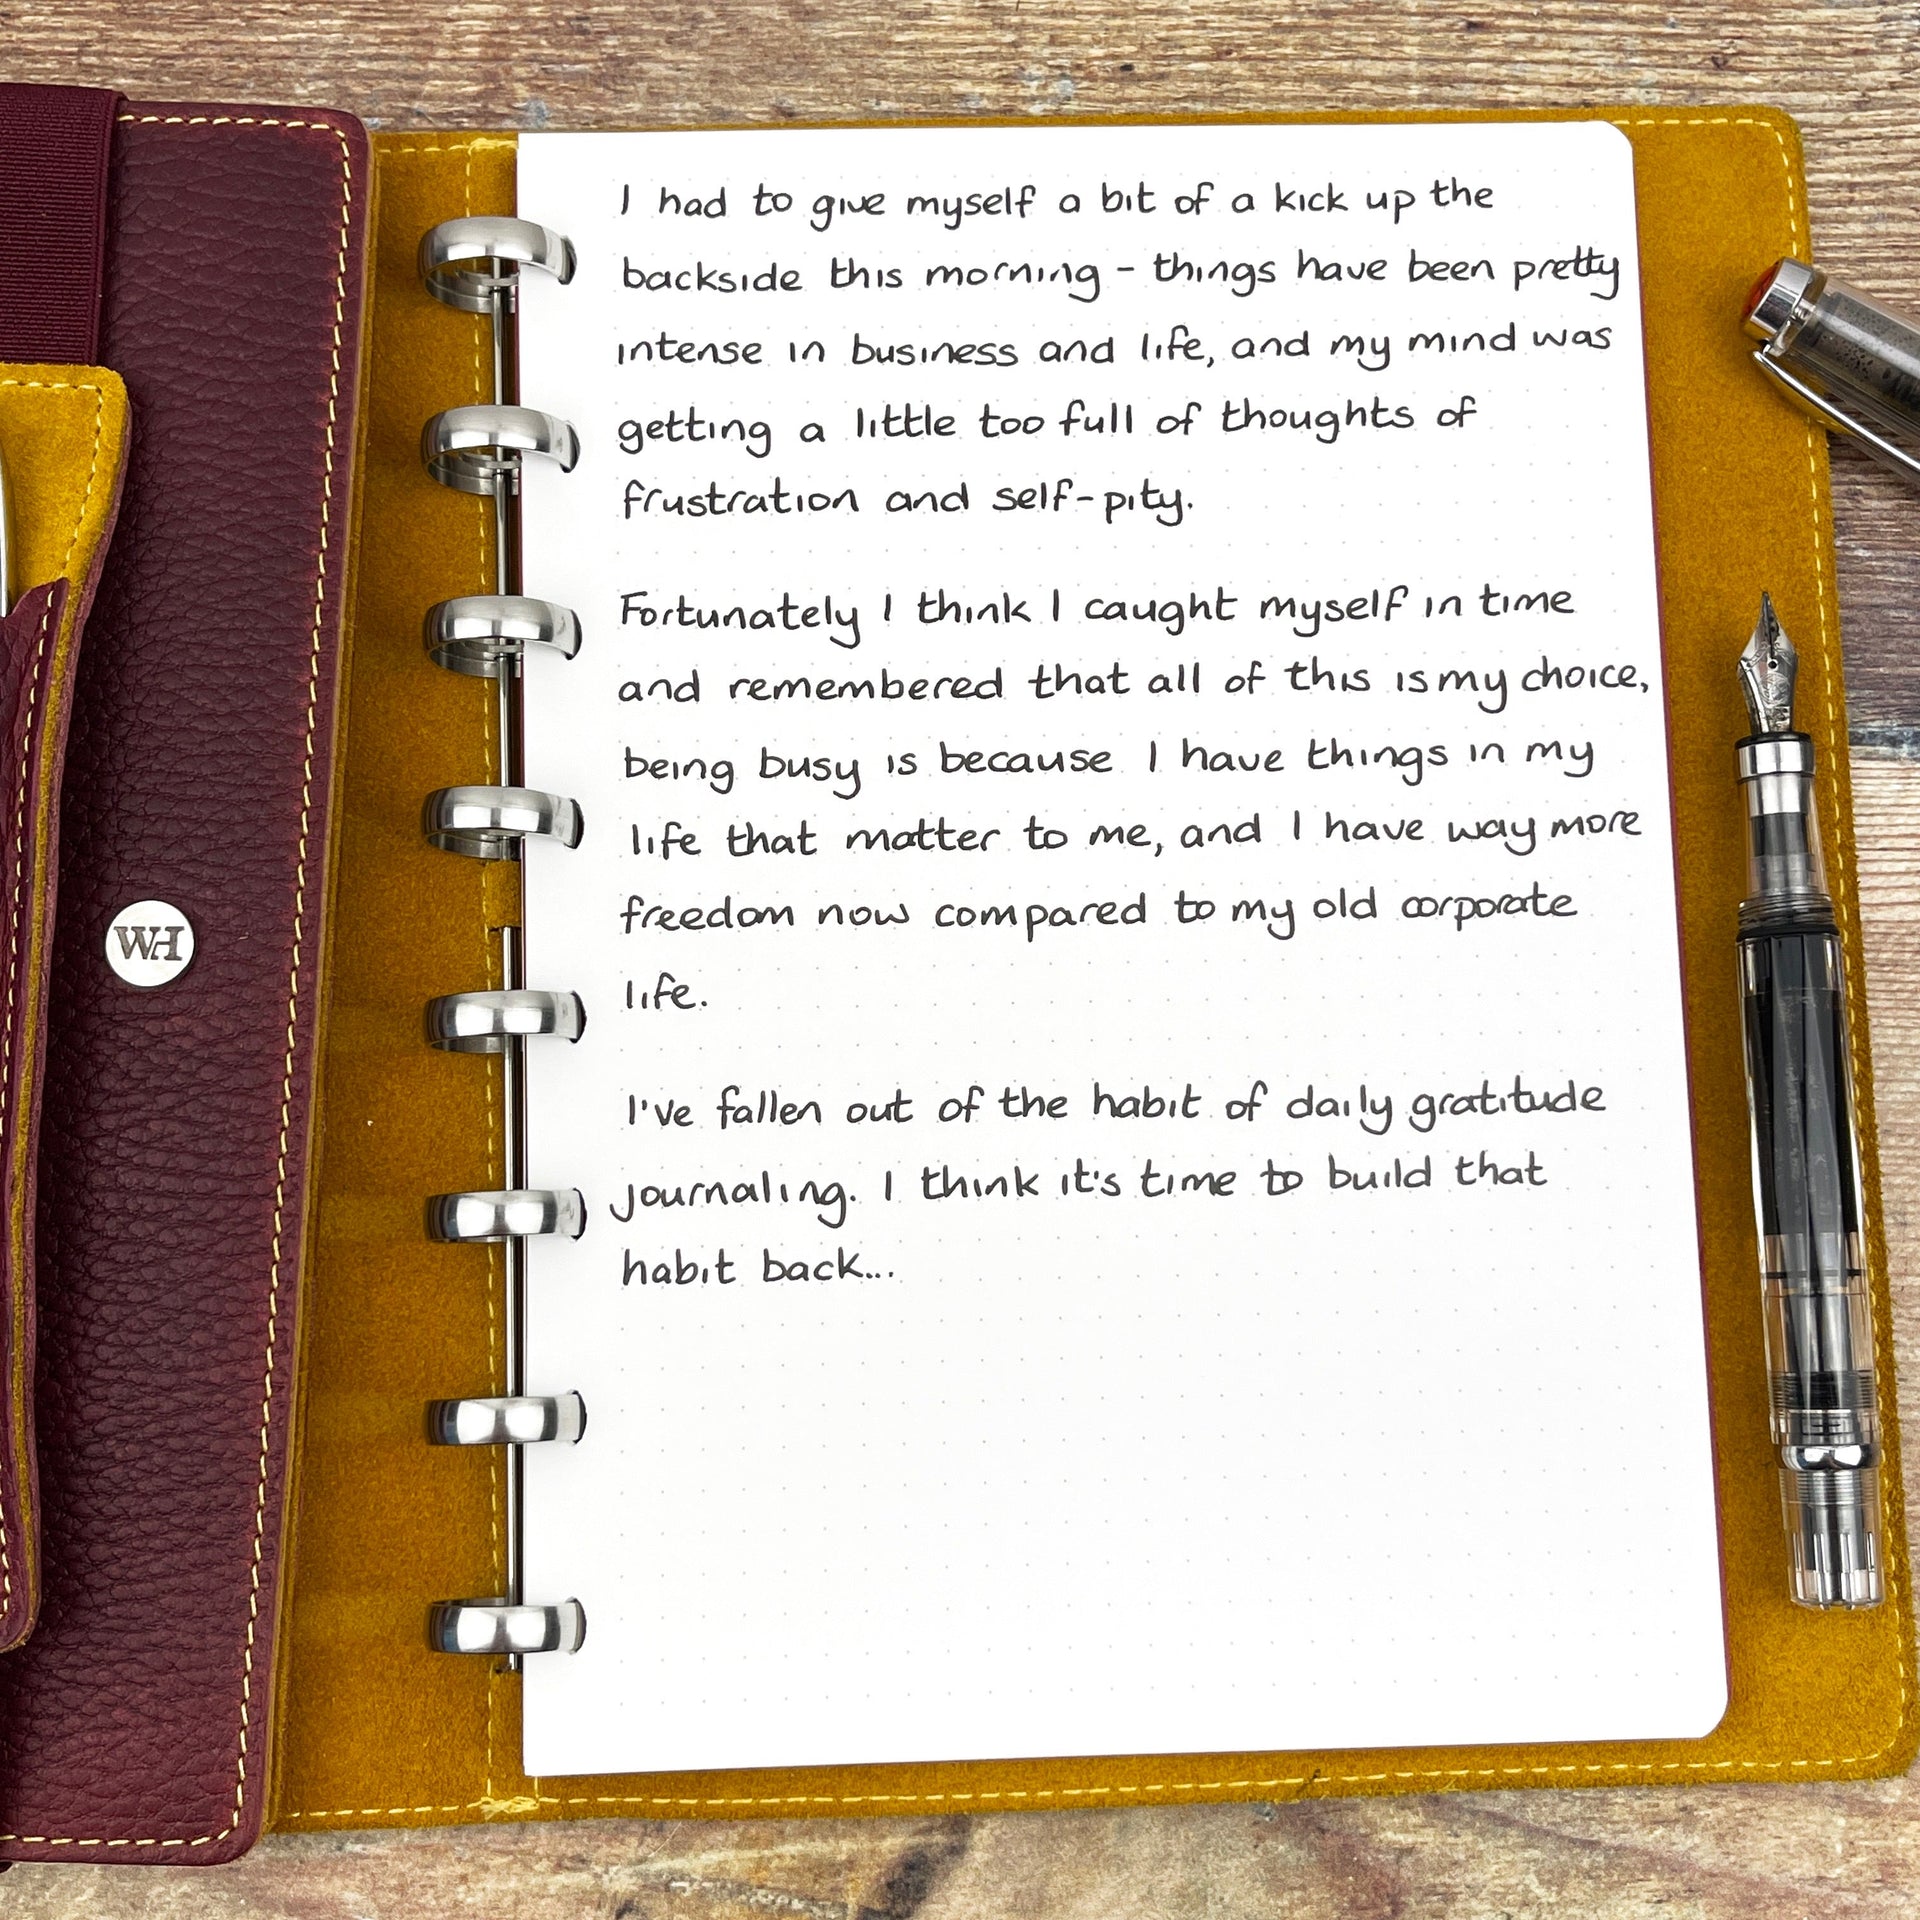 I had to give myself a bit of a kick up the
backside this morning - things have been pretty
intense in business and life, and my mind was
getting a little too full of thoughts of
frustration and self-pity.
Fortunately I think I caught myself in time
and remembered that all of this is my choice,
being busy is because I have things in my
life that matter to me, and I have way more
freedom now compared to my old corporate
life.
I've fallen out of the habit of daily gratitude
journaling. I think it's time to build that
habit back...
WH